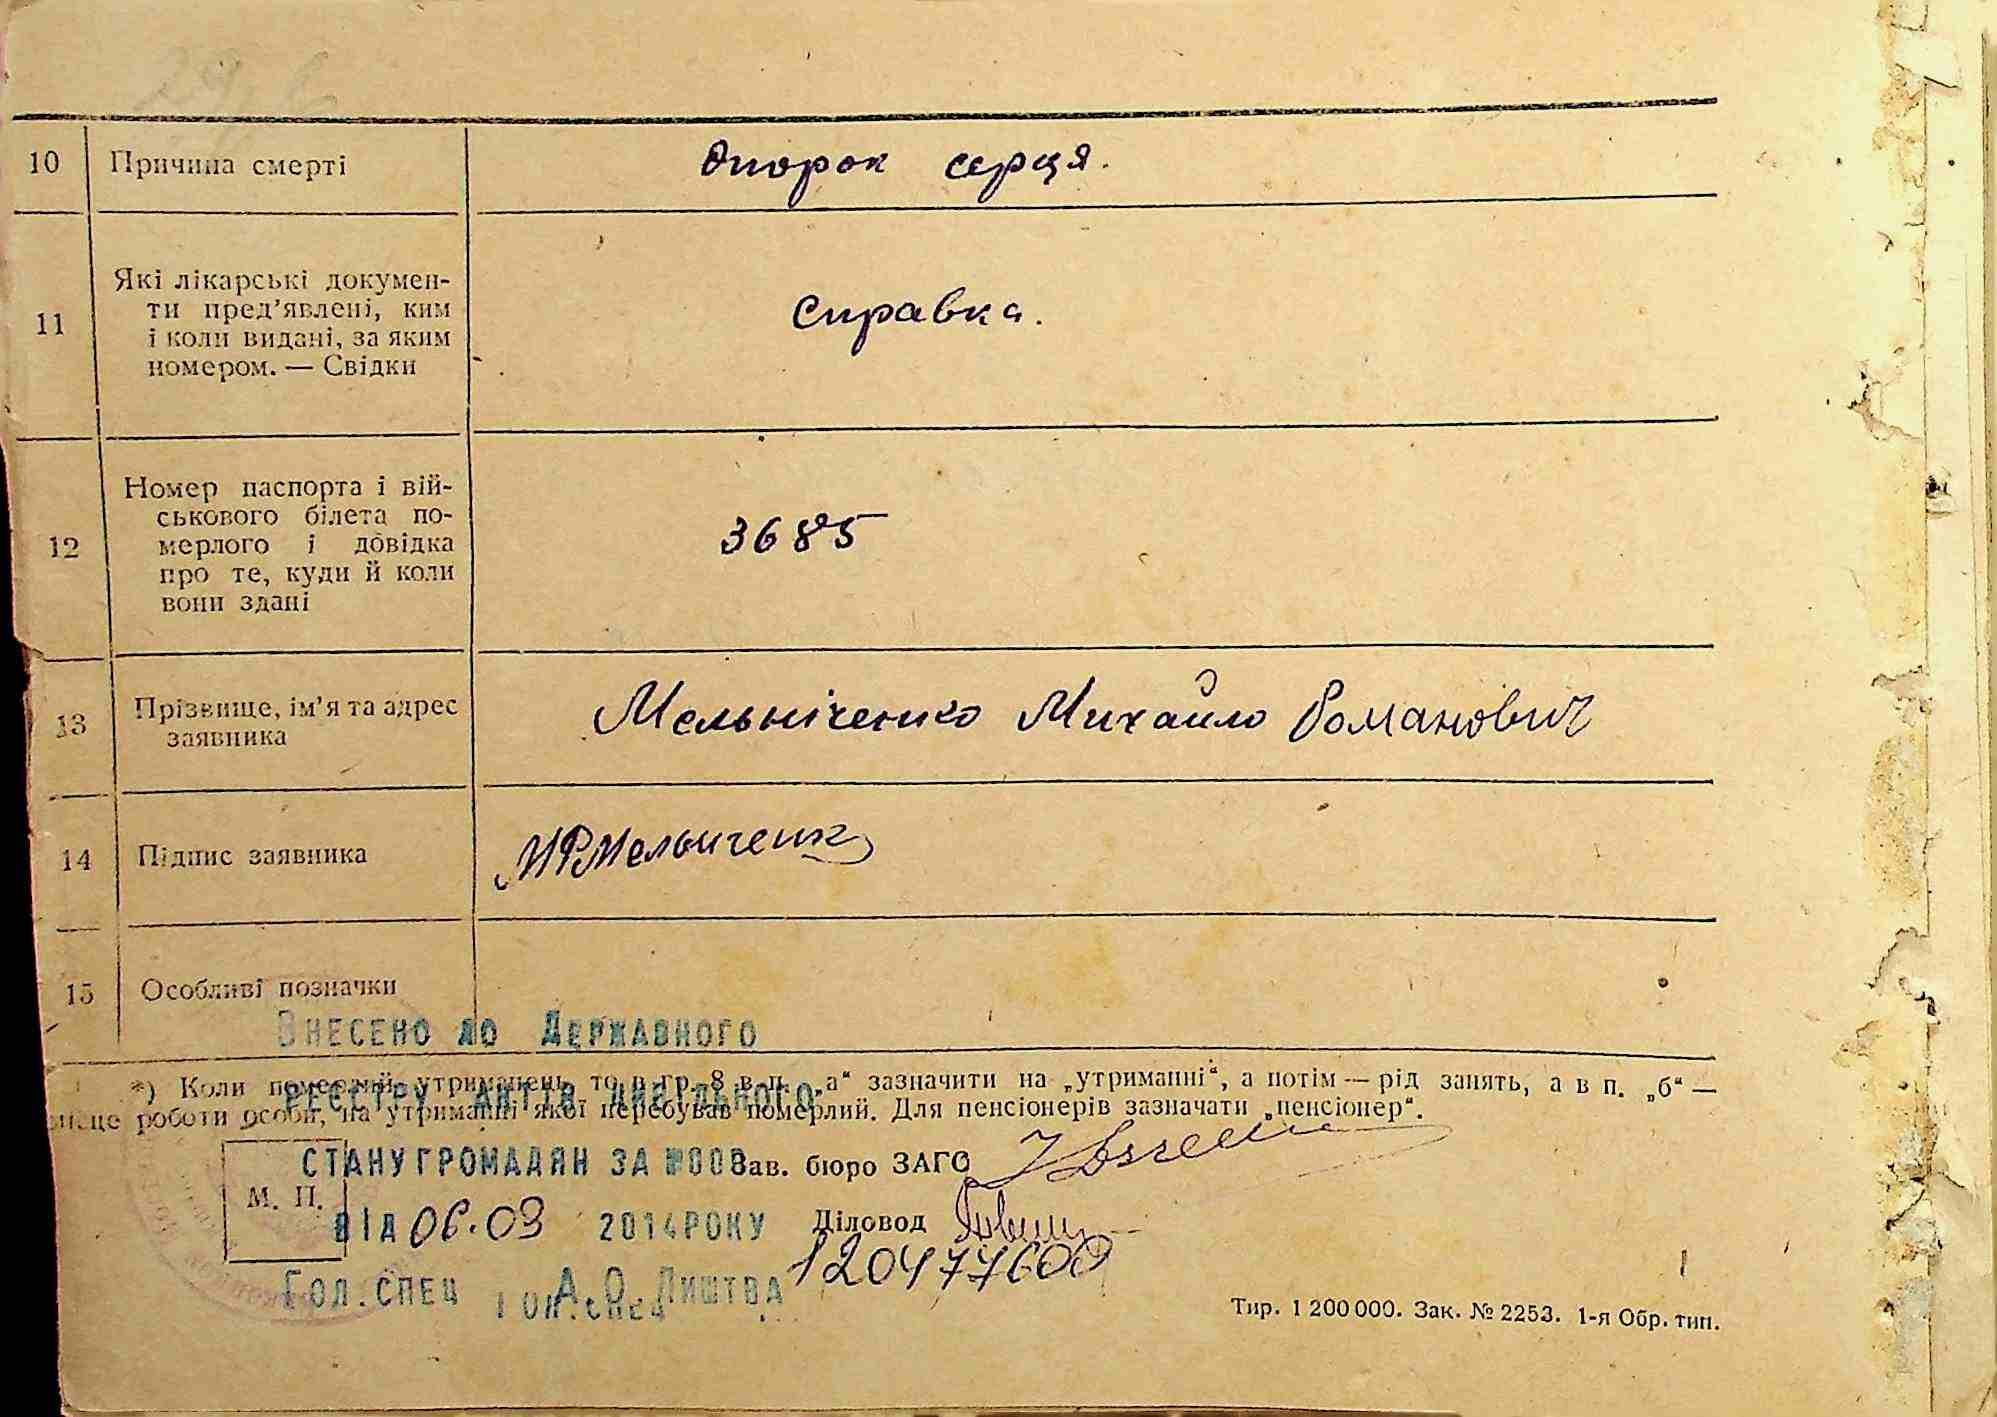 10 Причина смерті Опорок серця.
11 Які лікарські докумен-
ти пред'явлені, ким
і коли видані, за яким
номером. — Свідки
Справка.
12 Номер паспорта і вій-
ськового білета по-
мерлого і довідка
про те, куди й коли
вони здані
3685
13 Прізвище, ім'я та адрес
заявника
Мельніченко Михайло Романович
14 Підпис заявника МРМельниченк
15 Особливі позначки
Внесено до Державного
*) Коли померлий утриманець, то в гр. 8 в п. „а“ зазначити на „утриманні“, а потім — рід занять, а в п. „б“ —
реєстру актів цивільного
місце роботи особи, на утриманні якої перебував померлий. Для пенсіонерів зазначати „пенсіонер“.
стану громадян за №00
Зав. бюро ЗАГС
М. П.
від 06.03 2014 року
Діловод
120477600
Гол.спец А.О.Лиштва
Гол.спец
Тир. 1 200 000. Зак. № 2253. 1-я Обр. тип.